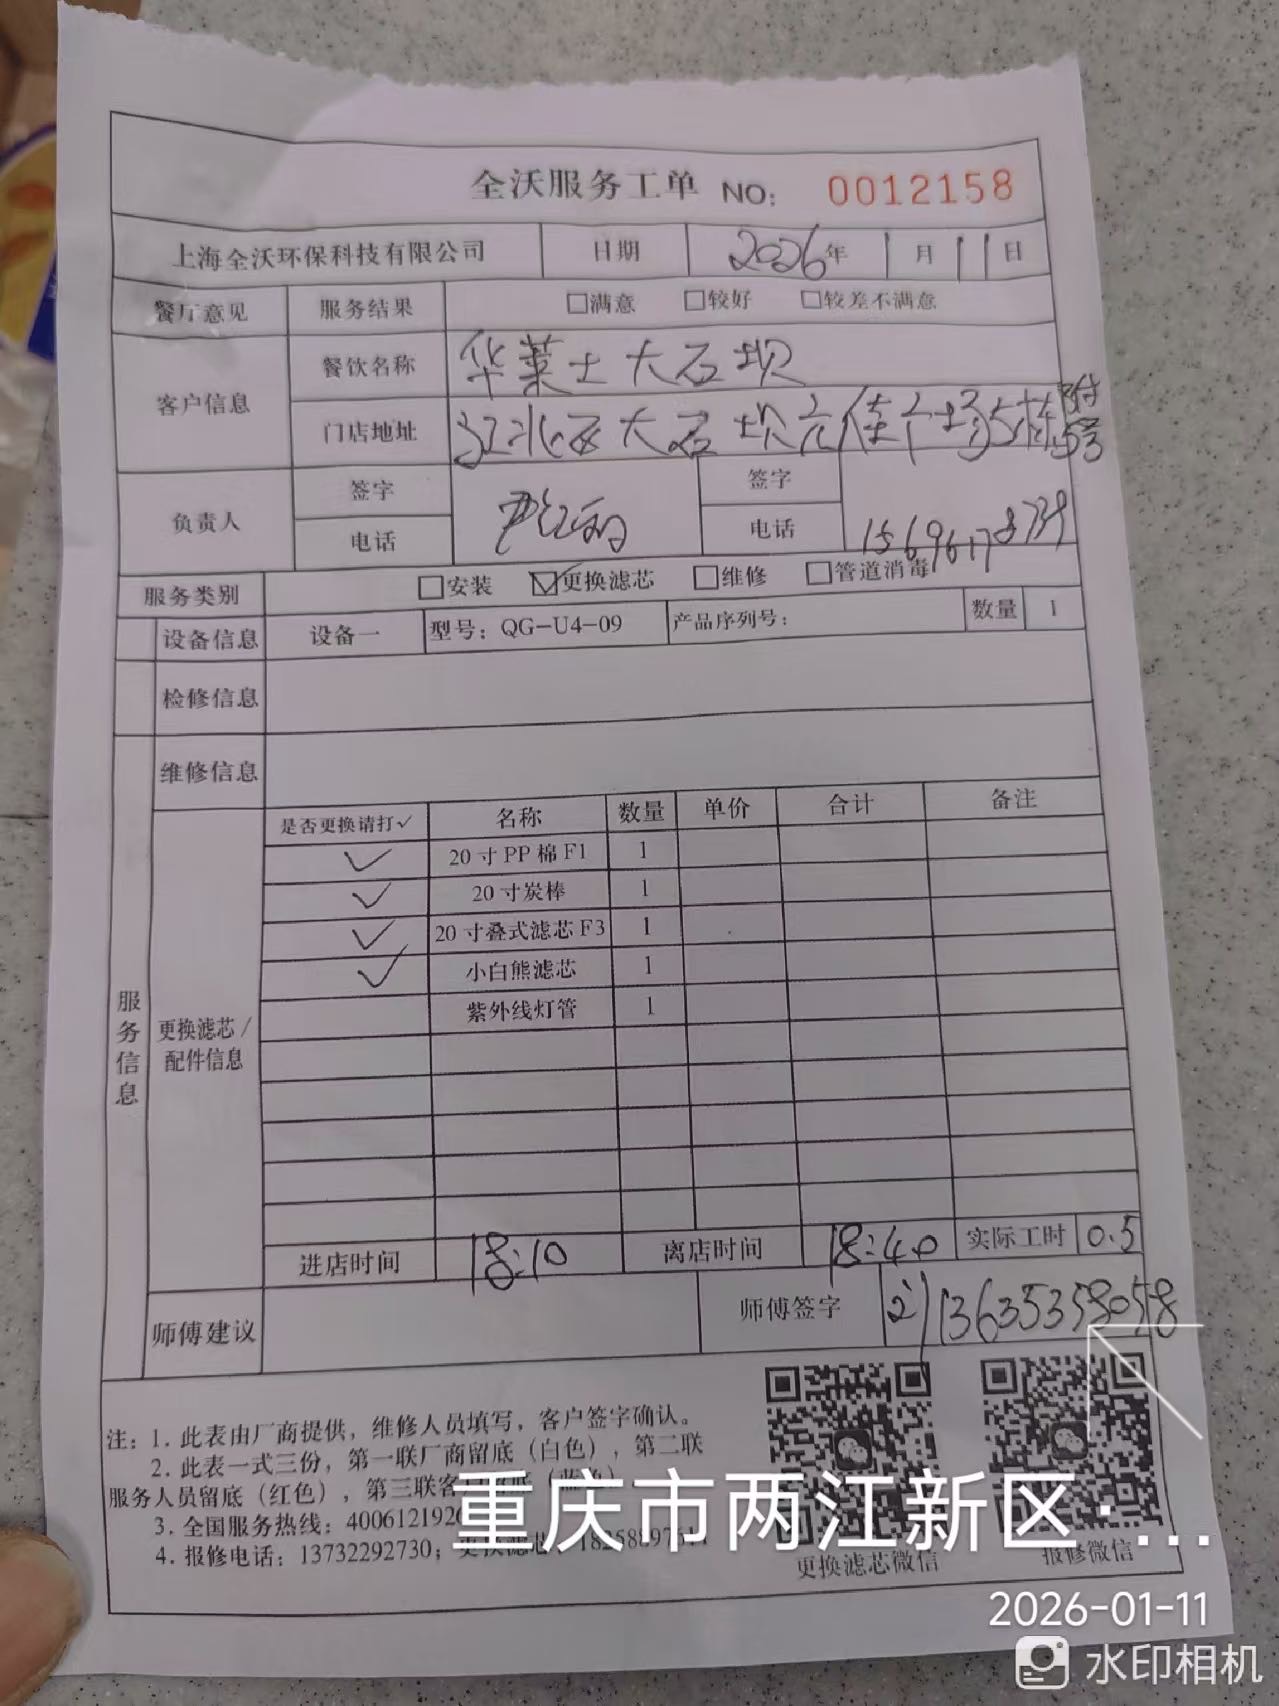 全沃服务工单 NO: 0012158
上海全沃环保科技有限公司 日期 2026年 1月11日
餐厅意见 服务结果 □满意 □较好 □较差不满意
客户信息 餐饮名称 华莱士大石坝
门店地址 江北区大石坝元佳广场5栋附
负责人 签字 签字
电话 电话
服务类别 □安装 ☑更换滤芯 □维修 □管道消毒
设备信息 设备一 型号：QG-U4-09 产品序列号： 数量 1
检修信息
维修信息
服务信息
更换滤芯/配件信息
是否更换请打✓ 名称 数量 单价 合计 备注
✓ 20寸PP棉F1 1
✓ 20寸炭棒 1
✓ 20寸叠式滤芯F3 1
✓ 小白熊滤芯 1
紫外线灯管 1
进店时间 18:10 离店时间 18:40 实际工时 0.5
师傅建议 师傅签字 13635358058
注：1. 此表由厂商提供，维修人员填写，客户签字确认。
2. 此表一式三份，第一联厂商留底（白色），第二联
服务人员留底（红色），第三联客
3. 全国服务热线：400612192
4. 报修电话：13732292730；
更换滤芯微信 报修微信
重庆市两江新区·...
2026-01-11
水印相机